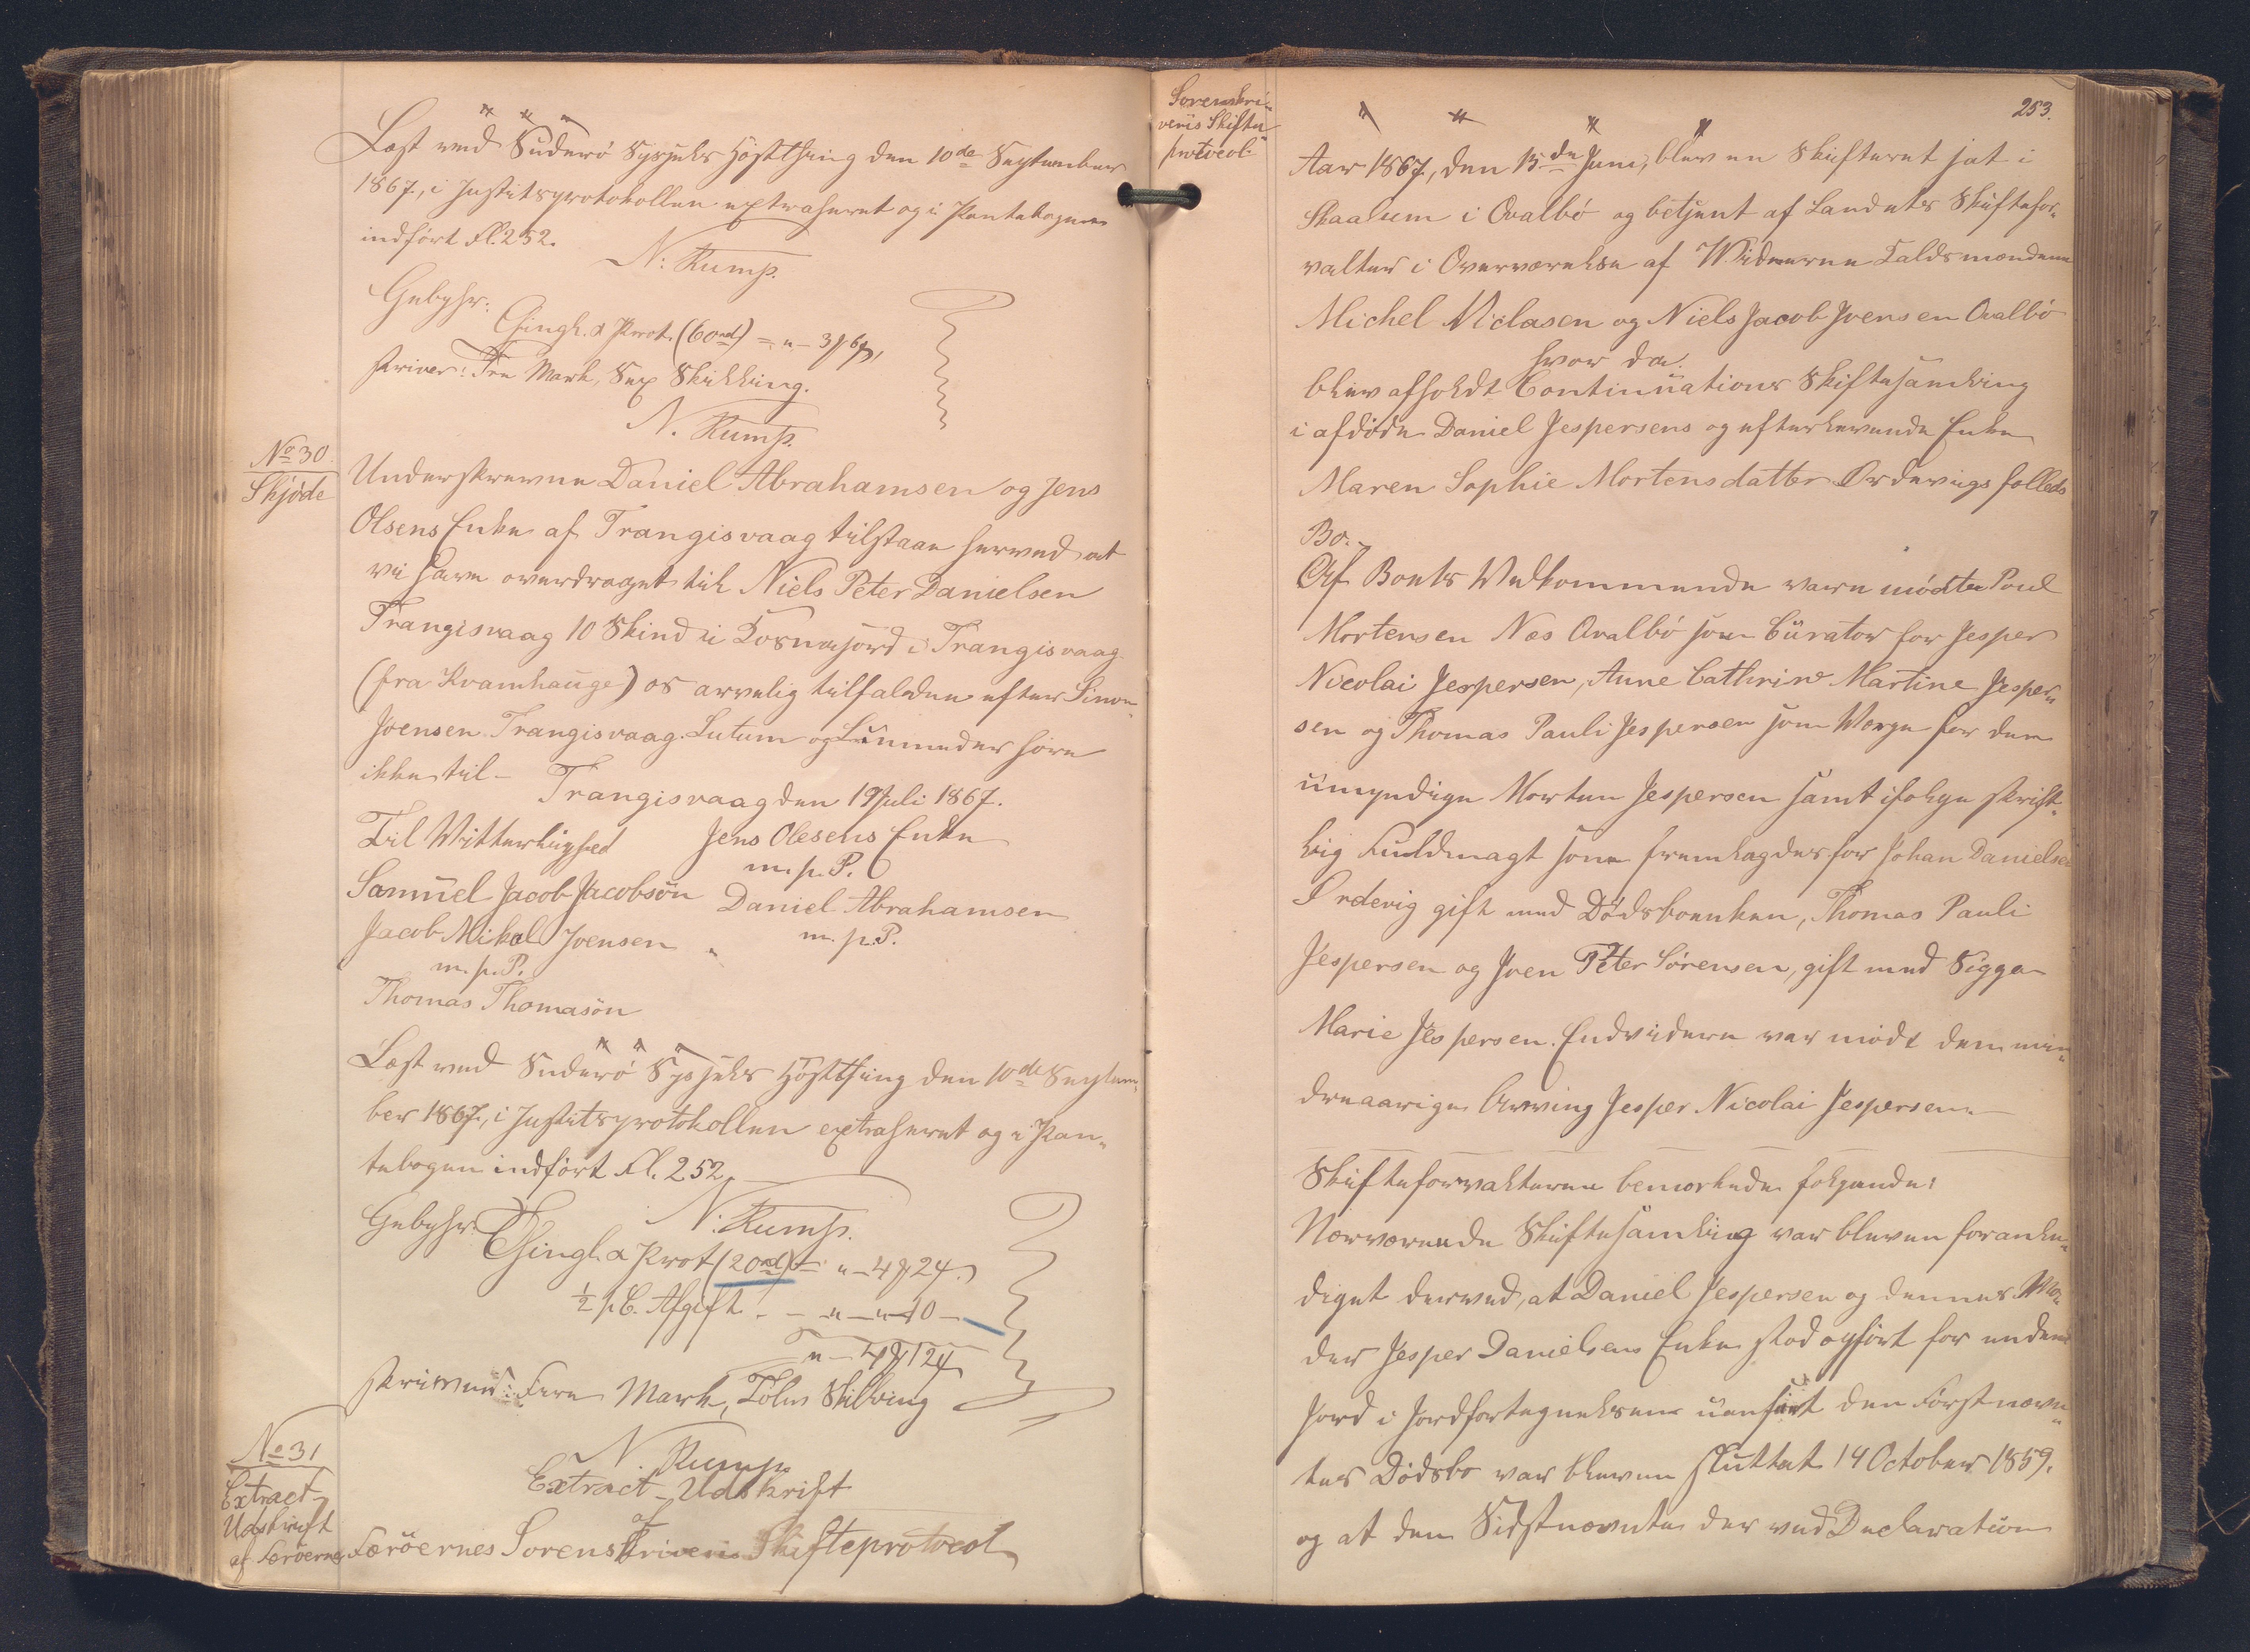 Læst ved Suderø Sysjels Høstthing den 10de September
1867, i Justitsprotokollen extraheret og i Pantebogen
indført Fl. 252.
N: Rump.
Gebyhr:
Thingl. & Prot. (60rd) = " - 3 ℳ 6 ß,
skriver: Tre Mark, Sex Skilling.
N. Rump.
No 30.
Skjøde
Underskrevne Daniel Abrahamsen og Jens
Olsens Enke af Trangisvaag tilstaae herved at
vi have overdraget til Niels Peter Danielsen
Trangisvaag 10 Skind i Kosnajord i Trangisvaag
(fra Kvamhauge) os arvelig tilfalden efter Simon
Joensen Trangisvaag. Lutum og Lunneder høre
ikke til -
Trangisvaag den 19 Juli 1867.
Til Vitterlighed
Jens Olesens Enke
m. p. P.
Samuel Jacob Jacobsøn
Daniel Abrahamsen
m. p. P.
Jacob Mikal Joensen
m. p. P.
Thomas Thomasøn
Læst ved Suderø Sysjels Høstthing den 10de Septem-
ber 1867, i Justitsprotokollen extraheret og i Pan-
tebogen indført Fl. 252
N. Rump.
Gebyhr
Thingl. & Prot (20rd) = " - 4 ℳ 24.
½ p.C. Afgift. - - " - " - 10 -
" - 4 ℳ 12 ß
skriver: Fire Mark, Tolv Skilling
N Rump.
No 31
Extract-
Udskrift
af Færøernes
Extract-Udskrift
af
Færøernes Sorenskriveris Skifteprotocol
Sorenskri-
veris Skifte
protocol
253.
Aar 1867, den 15de Juni, blev en Skifteret sat i
Skaalum i Qvalbø og betjent af Landets Skiftefor-
valter i Overværelse af Vidnerne Taldsmændene
Michel Niclasen og Niels Jacob Joensen Qvalbø
hvor da.
blev afholdt Continuations Skiftesamling
i afdøde Daniel Jespersens og efterlevende Enke
Maren Sophie Mortensdatter Ørdevigs fælleds
Bo.
Af Boets Vedkommende vare mødte Poul
Mortensen Næs Qvalbø som Curator for Jesper
Nicolai Jespersen, Anne Cathrine Martine Jesper-
sen og Thomas Pauli Jespersen som Værge for den
umyndige Morten Jespersen samt ifølge skrift-
lig Fuldmagt som fremlagdes for Johan Danielsen
Ørdevig gift med Dødsboenken, Thomas Pauli
Jespersen og Joen Peter Sørensen, gift med Sigga
Marie Jespersen. Endvidere var mødt den min-
dreaarige Arving Jesper Nicolai Jespersen.
Skifteforvalteren bemærkede følgende:
Nærværende Skiftesamling var bleven foranle-
diget derved, at Daniel Jespersen og dennes Mo-
der Jesper Danielsens Enke stod opført for endeel
Jord i Jordfortegnelsen uanset den Førstnævn-
tes Dødsbo var bleven sluttet 14 October 1859.
og at den Sidstnævnte der ved Declaration